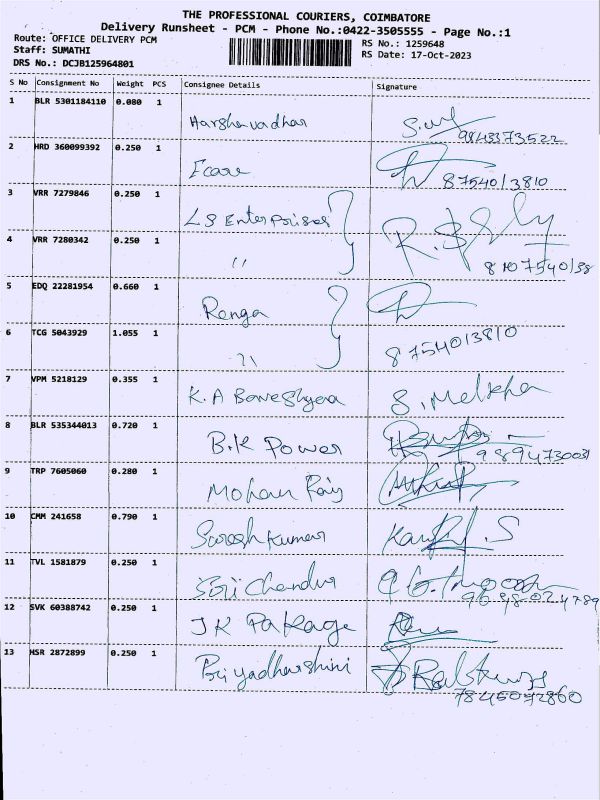 THE PROFESSIONAL COURIERS, COIMBATORE
Delivery Runsheet - PCM - Phone No.:0422-3505555 - Page No.:1
Route: OFFICE DELIVERY PCM
Staff: SUMATHI
DRS No.: DCJB125964801
RS No.: 1259648
RS Date: 17-Oct-2023
S No Consignment No Weight PCS Consignee Details Signature
1 BLR 5301184110 0.080 1 Harshavadhar
9843373522
2 HRD 360099392 0.250 1 Icare
8754013810
3 VRR 7279846 0.250 1 LS Enterprises
4 VRR 7280342 0.250 1 〃
8107540138
5 EDQ 22281954 0.660 1 Renga
6 TCG 5043929 1.055 1 〃 8754013810
7 VPM 5218129 0.355 1 K.A S. Mekha
8 BLR 535344013 0.720 1 B.K Power
9894730031
9 TRP 7605060 0.280 1 Mohan Raj
10 CMM 241658 0.790 1 Suresh Kumar
11 TVL 1581879 0.250 1 Sri Chandur
12 SVK 60388742 0.250 1 JK Pakage
13 HSR 2872899 0.250 1 Priyadharshini
7845072860